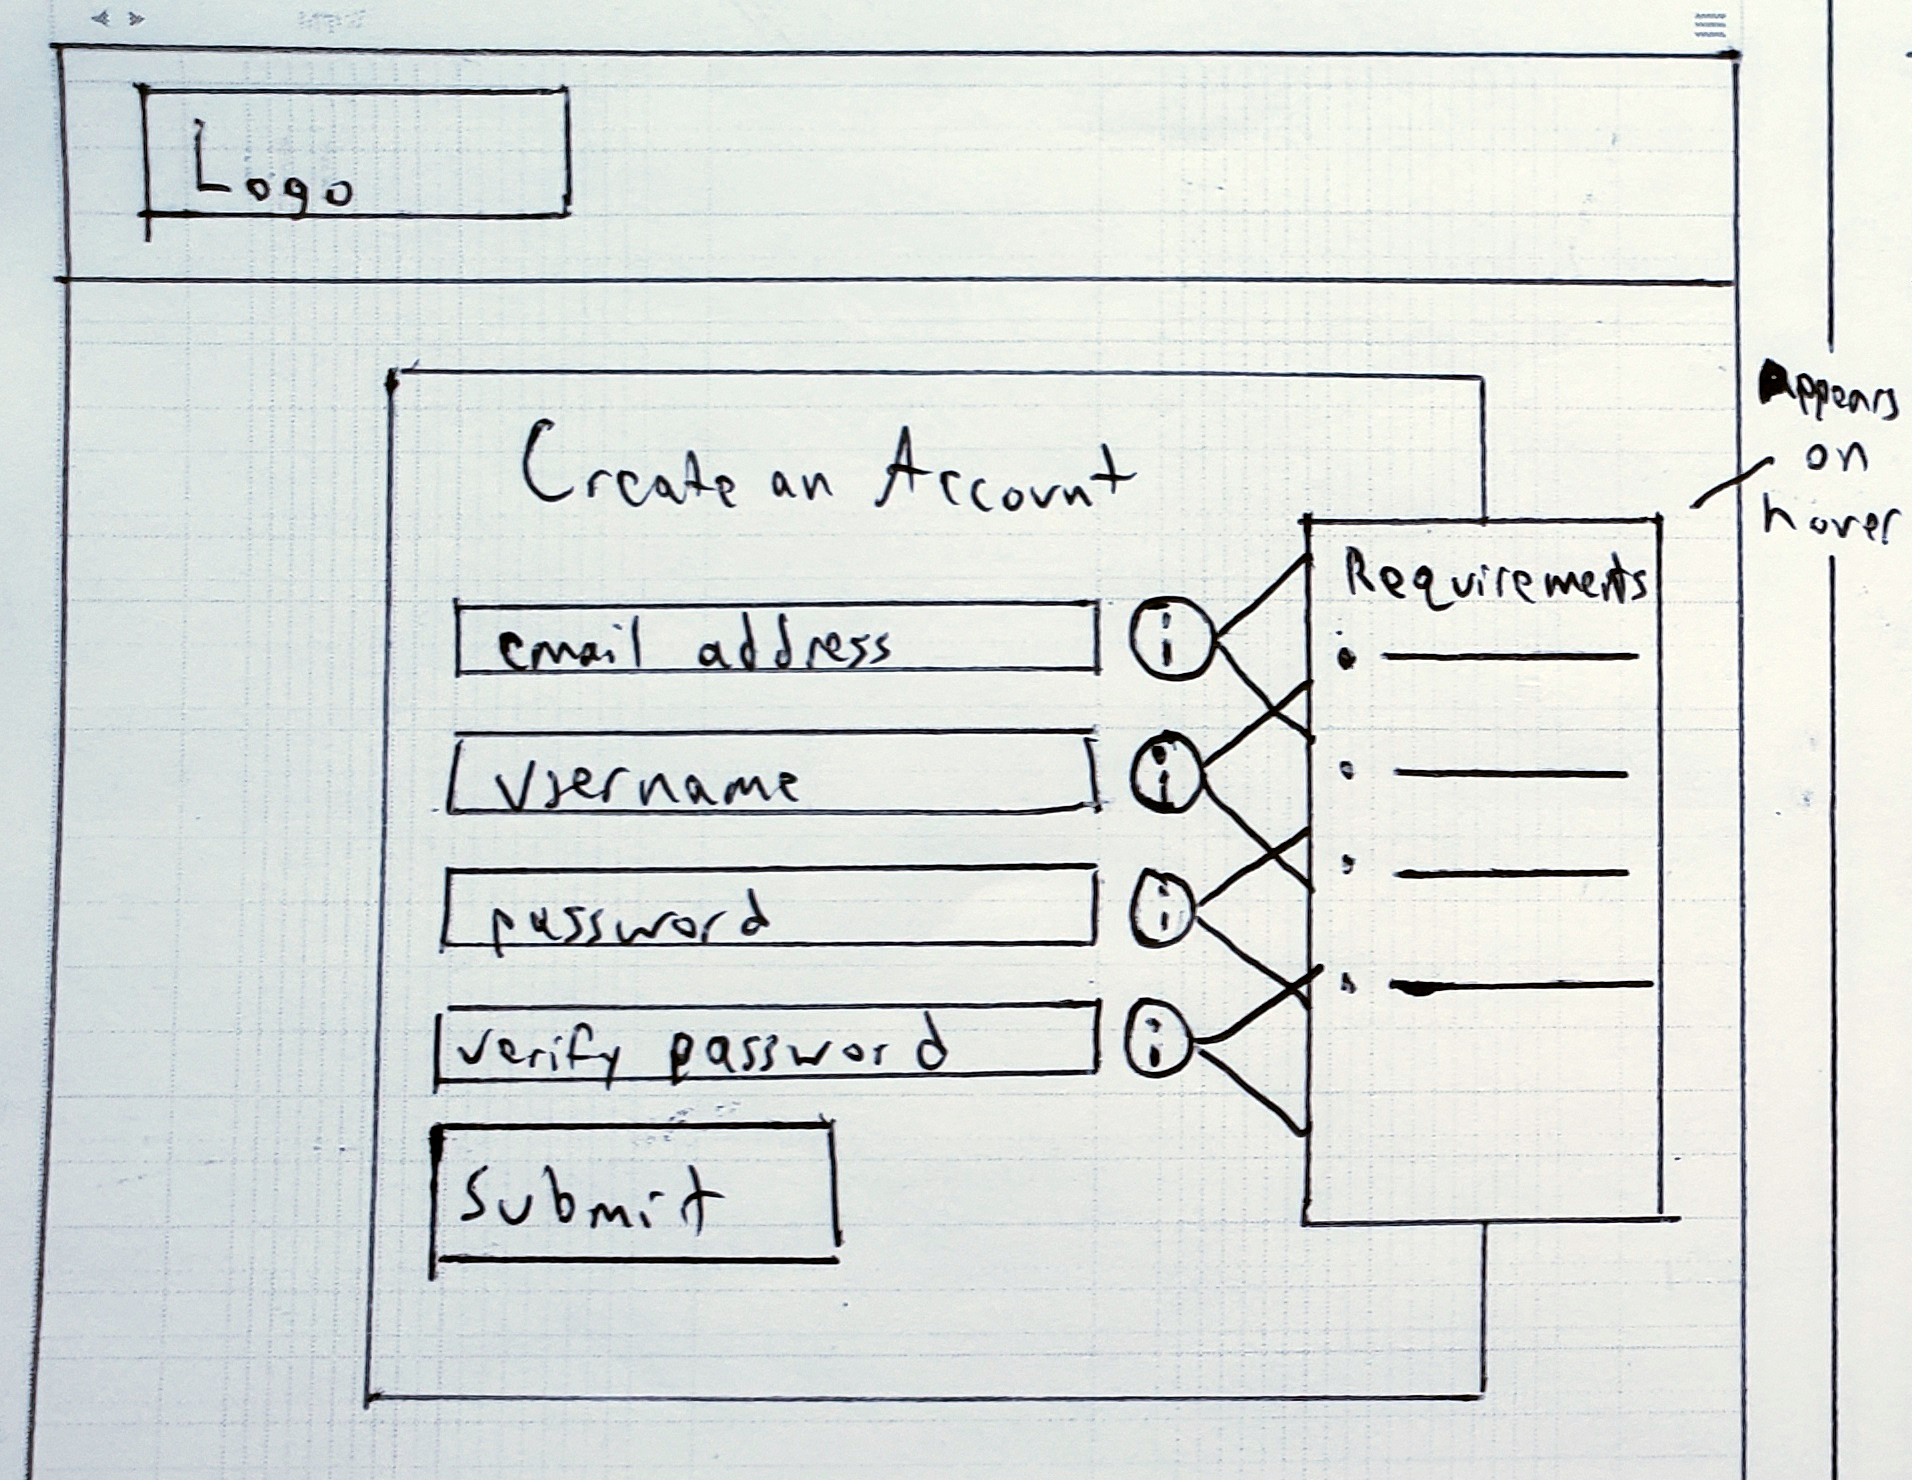 Logo
Create an Account
email address
i
username
i
password
i
verify password
i
Submit
Requirements
Appears
on
hover